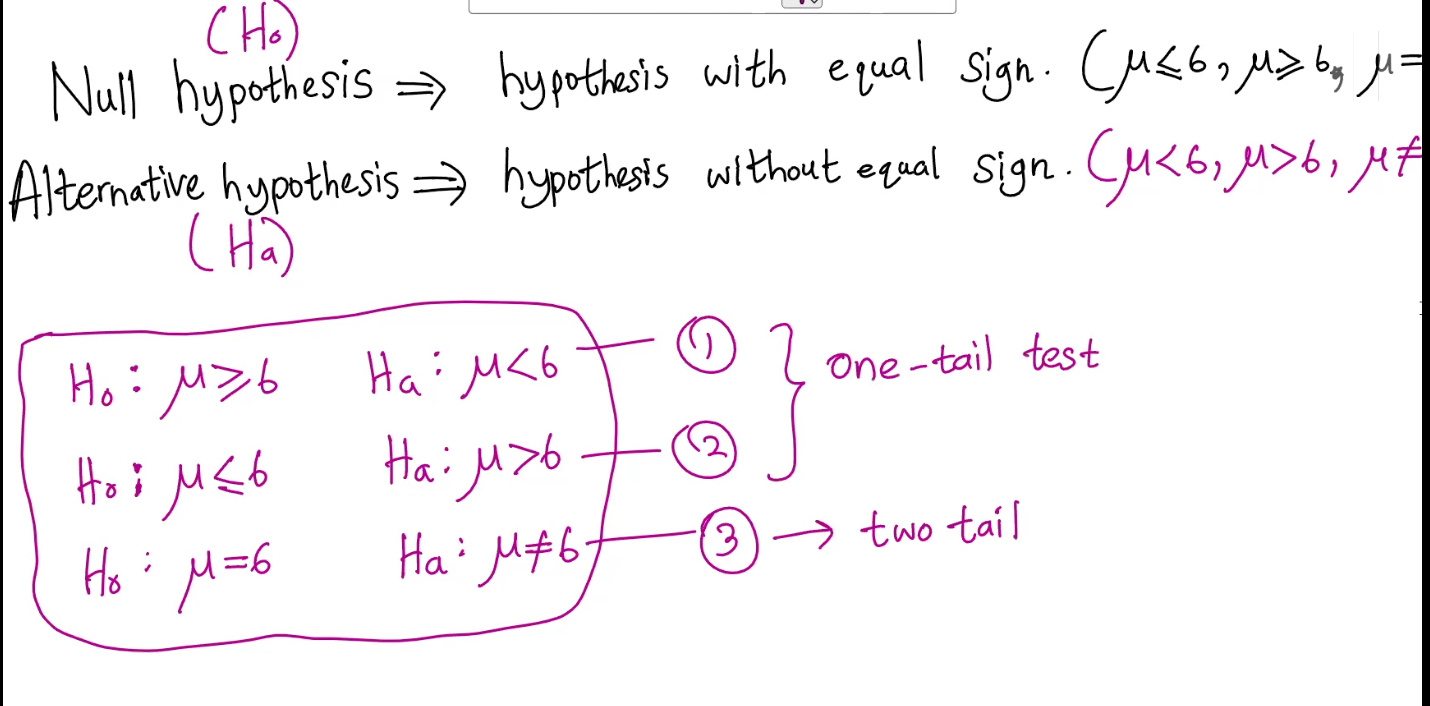 (H₀)
Null hypothesis ⇒ hypothesis with equal sign. (μ≤6, μ≥6, μ=
Alternative hypothesis ⇒ hypothesis without equal sign. (μ<6, μ>6, μ≠
(Ha)
H₀: μ≥6 Ha: μ<6 — ① } one-tail test
H₀: μ≤6 Ha: μ>6 — ②
H₀: μ=6 Ha: μ≠6 — ③ → two tail